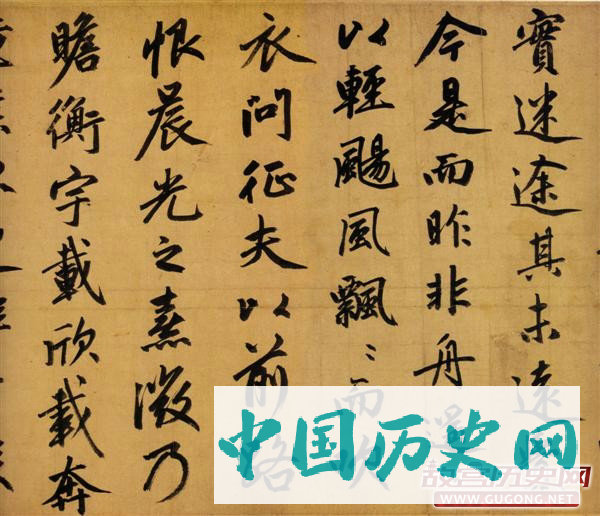 實迷途其未遠
今是而昨非舟遙
以輕颺風飄〻而吹
衣問征夫以前路
恨晨光之熹微乃
瞻衡宇載欣載奔
中国历史网
故宫历史网
WWW.GUGONG.NET